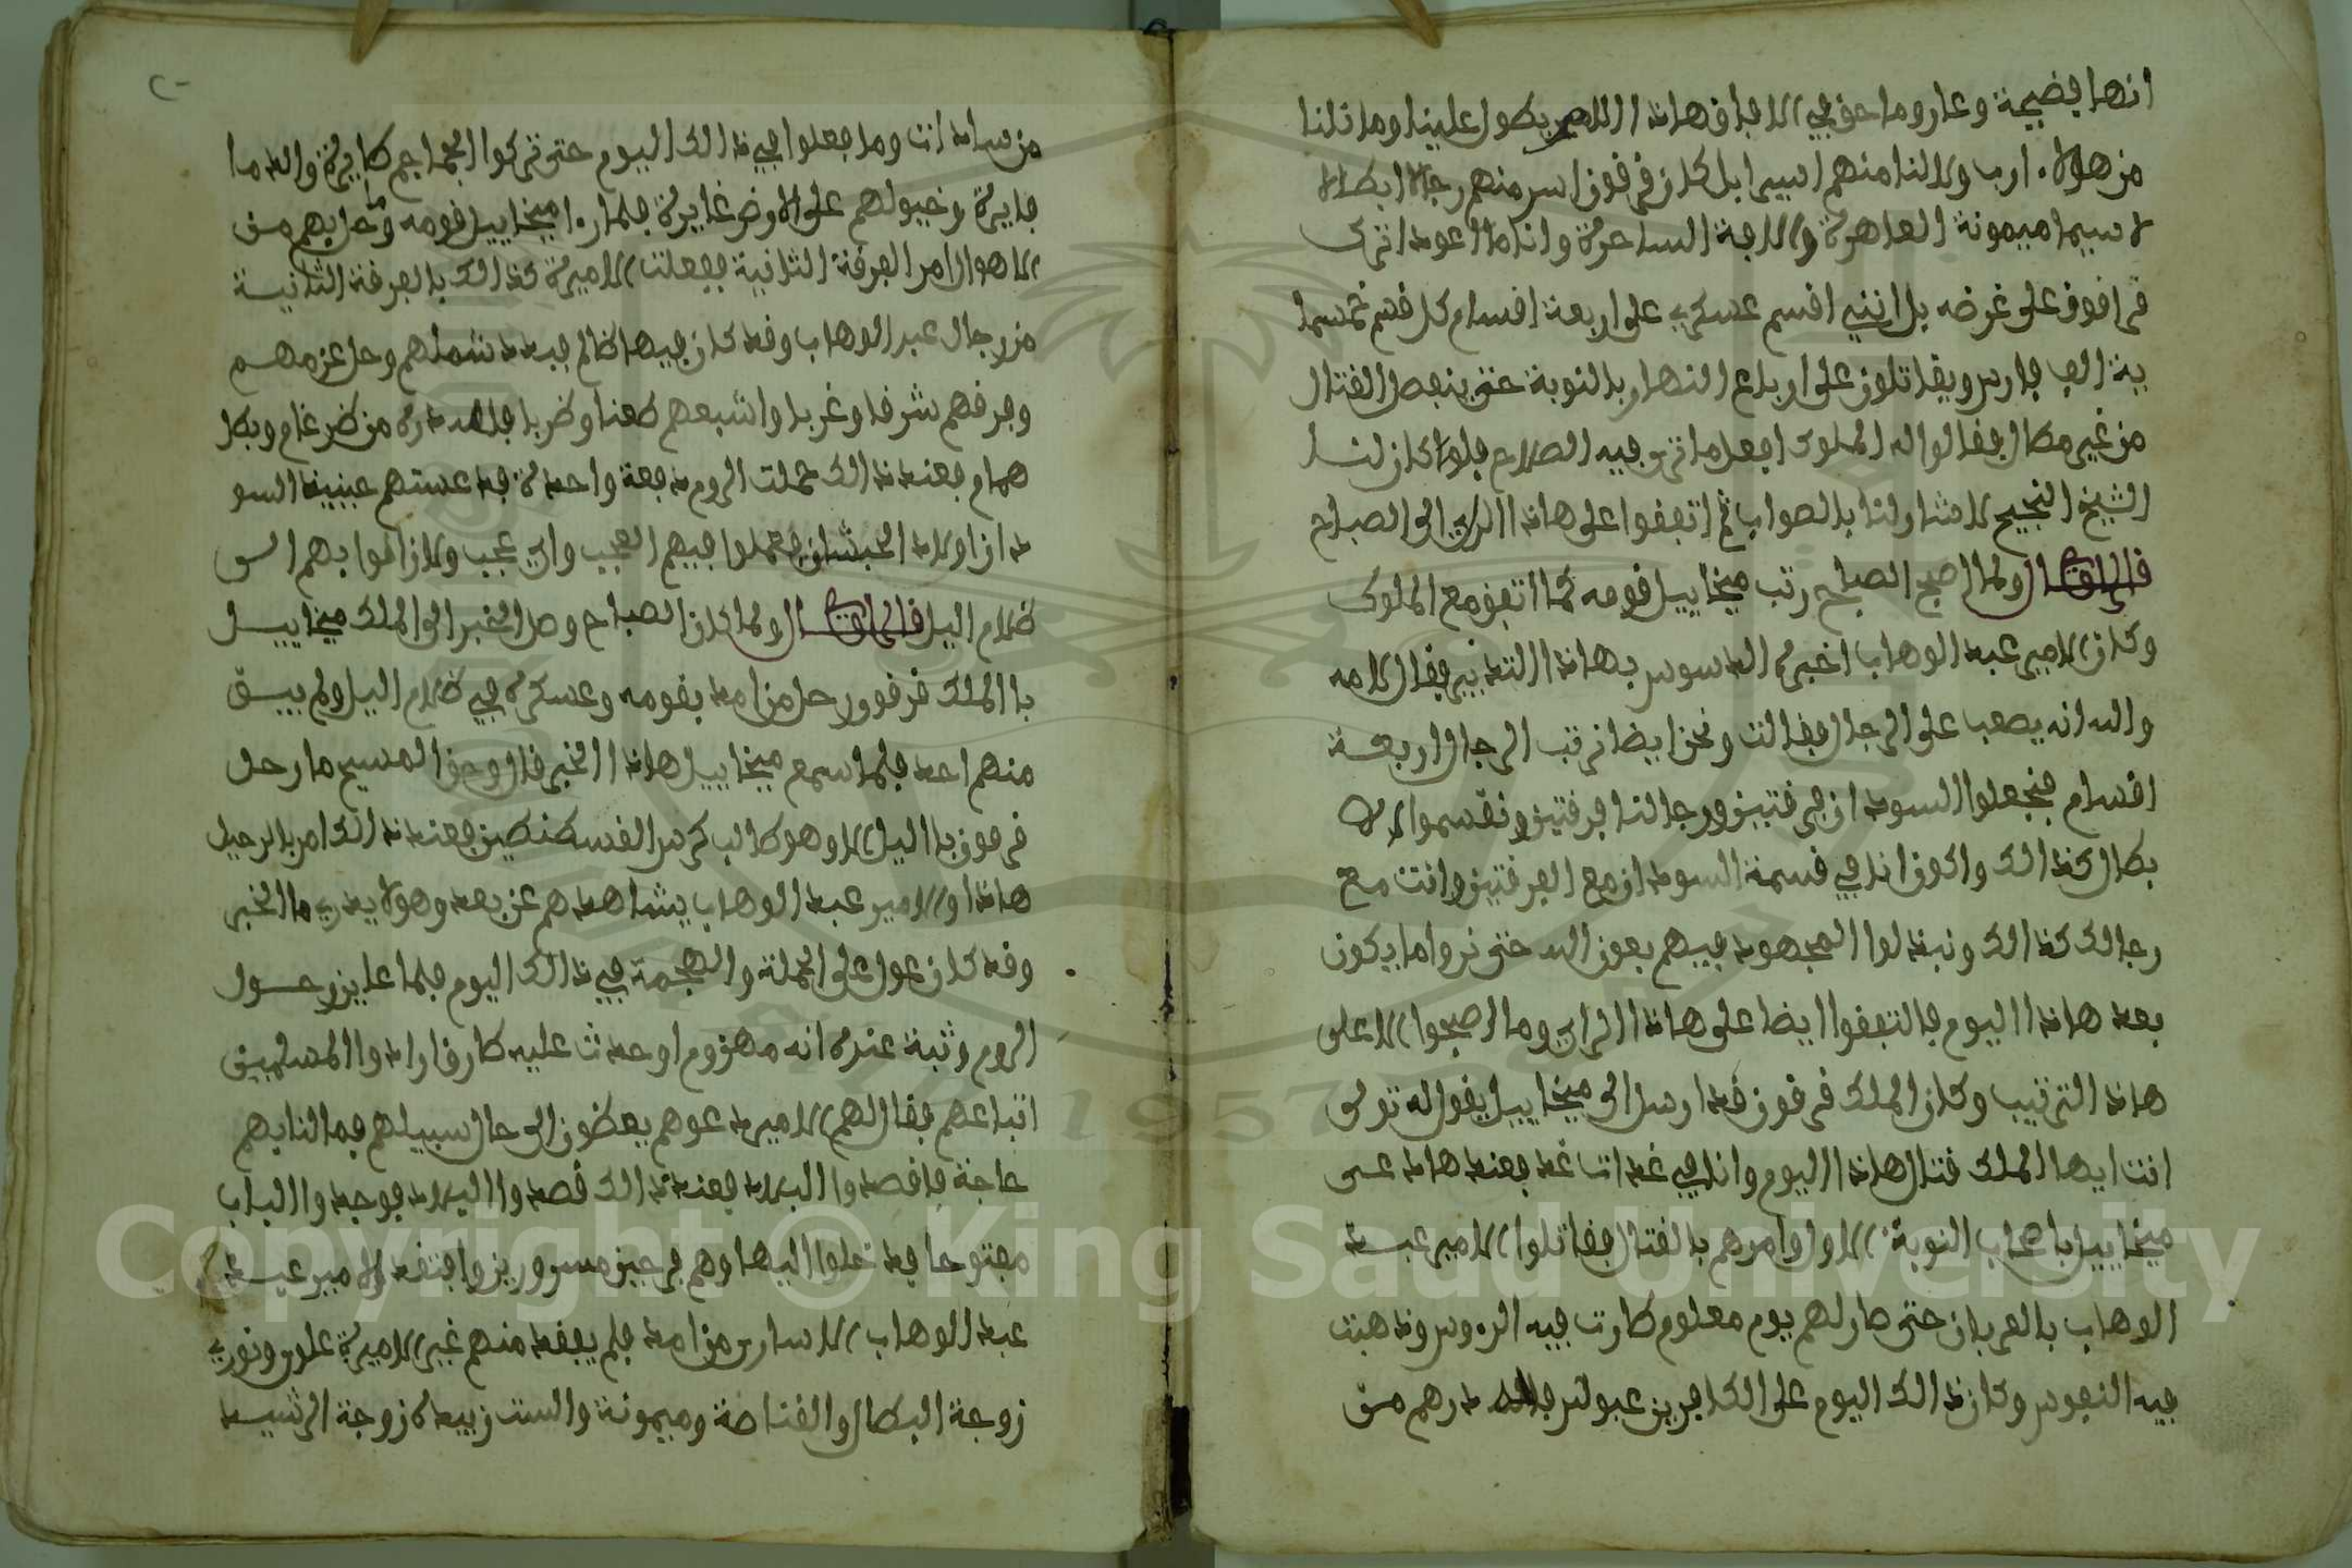 انها فضيحة وعار وما حق في الافاق هاذا الامر يطول علينا وما نلنا
من هولاء ارب ولا لنا منهم اسيرا بل كان قرقون اسر منهم رجالا ابطالا
لا سيما ميمونة العاهرة والاجة الساحرة وانا ما اعود اترك
قرقون على غرضه بل انني اقسم عسكري على اربعة اقسام كل قسم خمسما
ية الف فارس ويقاتلون على ارباع النهار بالنوبة حتى ينفصل القتال
من غير مطال فقالوا له الملوك افعل ما ترى فيه الصلاح فلو كان لنا
الشيخ النجيح لاشار لنا بالصواب ثم اتفقوا على هاذا الراي الى الصباح
قال الراوي ولما اصبح الصباح رتب ميخاييل قومه كما اتفق مع الملوك
وكان الامير عبد الوهاب اخبره الدسوس بهاذا التدبير فقال لامه
والله انه يصعب على الرجال فقالت ونحن ايضا نرتب الرجال اربعة
اقسام فنجعلوا السودان فرقتين ورجالنا فرقتين ونقسموا الا
بطال كذالك واكون انا في قسمة السودان مع الفرقتين وانت مع
رجالك كذالك ونبذلوا المجهود فيهم بعون الله حتى نروا ما يكون
بعد هاذا اليوم فالتفقوا ايضا على هاذا الراي وما اصبحوا الا على
هاذا الترتيب وكان الملك قرقون قد ارسل الى ميخاييل يقول له تولى
انت ايها الملك قتال هاذا اليوم وانا في غد اتا غد فعند هاذ عى
ميخاييل باصحاب النوبة الاولى وامرهم بالقتال فقاتلوا الامير عبد
الوهاب بالعربان حتى صار لهم يوم معلوم طارت فيه الروس وذهبت
فيه النفوس وكان ذالك اليوم على الكافرين عبوس فلله درهم من
من سادات وما فعلوا في ذالك اليوم حتى تركوا الجماجم طايرة والدما
فايرة وخيولهم على الارض غايرة فلما را ميخاييل قومه وما حل بهم من
الاهوال امر الفرقة الثانية ففعلت الاميرة كذالك بالفرقة الثانية
من رجال عبد الوهاب وقد كان فيها ظالم فبدد شملهم وحل عزمهم
وفرقهم شرقا وغربا واشبعهم طعنا وضربا فلله دره من ضرغام وبطل
همام فعند ذالك حملت الروم دفعة واحدة فدعستهم عبيد السو
دان اولاد الحبشان وعملوا فيهم العجب واي عجب ولا زالوا بهم الى
ظلام اليل قال الراوي ولما كان الصباح وصل الخبر الى الملك ميخاييل
با الملك قرقون رحل من امد بقومه وعسكره في ظلام اليل ولم يبق
منهم احد فلما سمع ميخاييل هاذا الخبر قال وحق المسيح ما رحل
قرقون باليل الا وهو طالب كرس القسطنطين فعند ذالك امر بالرحيل
هاذا والامير عبد الوهاب يشاهدهم عن بعد وهو لا يدري ما الخبر
وقد كان عول على الحملة والهجمة في ذالك اليوم فلما عاين رحول
الروم وثبة عنده انه مهزوم او حدث عليه طارق ارادوا المسلمين
اتباعهم فقال لهم الامير دعوهم يمضون الى حال سبيلهم فما لنا بهم
حاجة فاقصدوا البلاد فعند ذالك قصدوا البلاد فوجدوا الباب
مفتوحا فدخلوا اليها وهم فرحين مسرورين وافتقد الامير عبد
عبد الوهاب الاسارى من امد فلم يفقد منهم غير الاميرة علوى ونورى
زوجة البطال والقناصة وميمونة والست زبيدة زوجة الرشيد